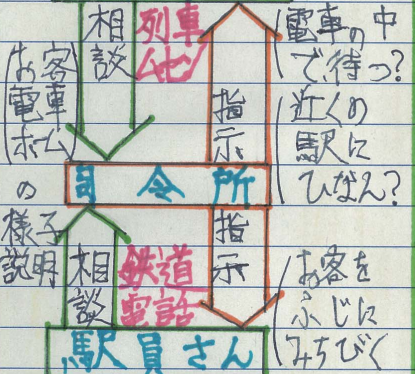 相談
列車
ムセン
指示
電車の中
で、待つ?
近くの
駅に
ひなん?
お客
電車
ホーム
の
様子
説明
司令所
相談
鉄道
電話
指示
お客を
ぶじに
みちびく
駅員さん